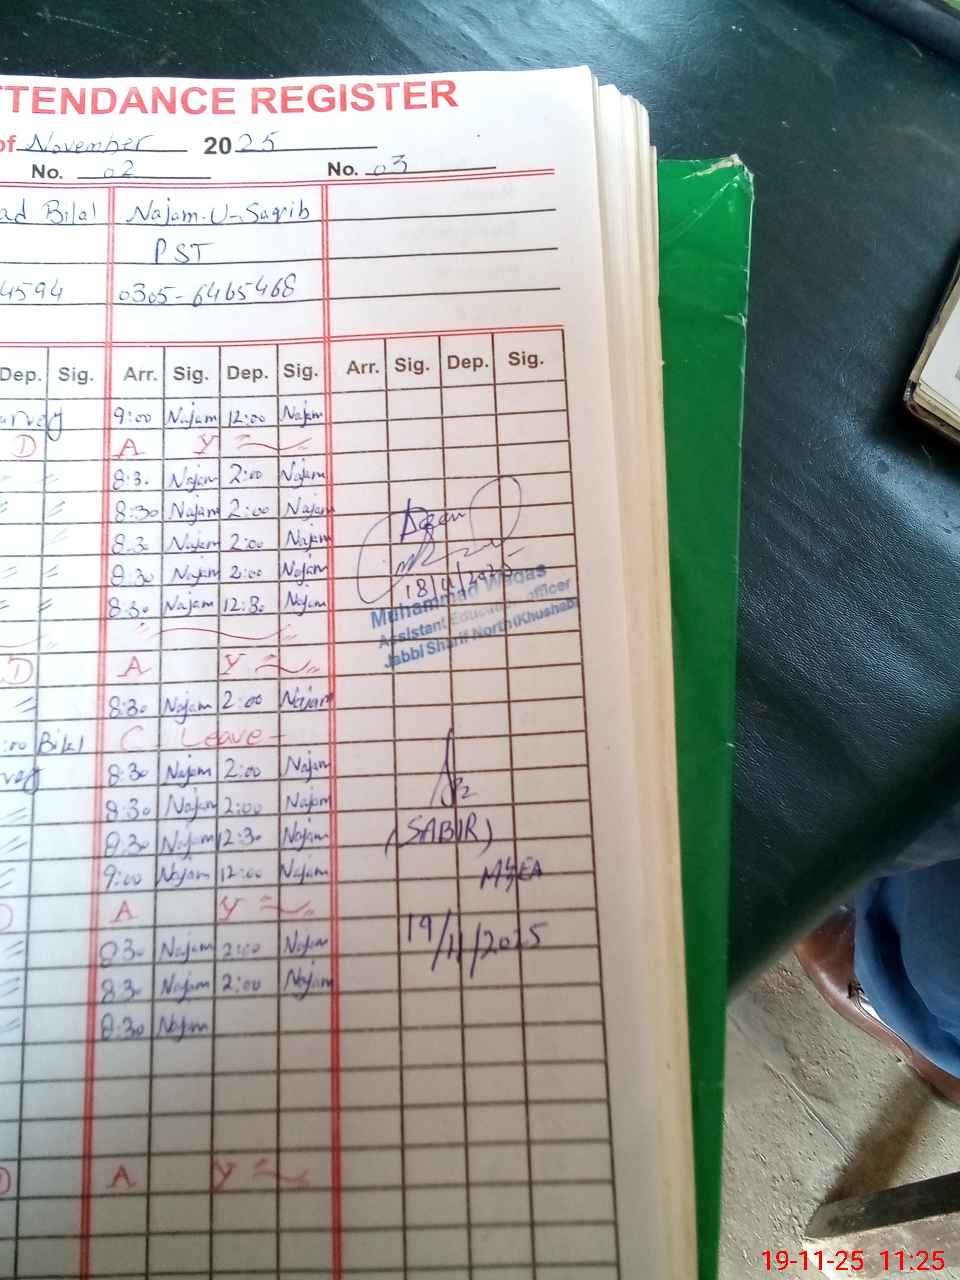 TTENDANCE REGISTER
of November 2025
No. 02 No. 03
ad Bilal Najam-U-Saqib
PST
4594 0305-6465468
Dep. Sig. Arr. Sig. Dep. Sig. Arr. Sig. Dep. Sig.
9:00 Najam 12:00 Najam
D A Y
8:30 Najam 2:00 Najam
8:30 Najam 2:00 Najam
8:30 Najam 2:00 Najam
8:30 Najam 2:00 Najam
18/11/2025
8:30 Najam 12:30 Najam
Muhammad
Assistant Education officer
Jabbi Sharif North (Khushab)
D A Y
8:30 Najam 2:00 Najam
Bilal C Leave
8:30 Najam 2:00 Najam
8:30 Najam 2:00 Najam
8:30 Najam 12:30 Najam
(SABIR)
9:00 Najam 12:00 Najam
MEA
A Y
19/11/2025
8:30 Najam 2:00 Najam
8:30 Najam 2:00 Najam
8:30 Najam
A Y
19-11-25 11:25